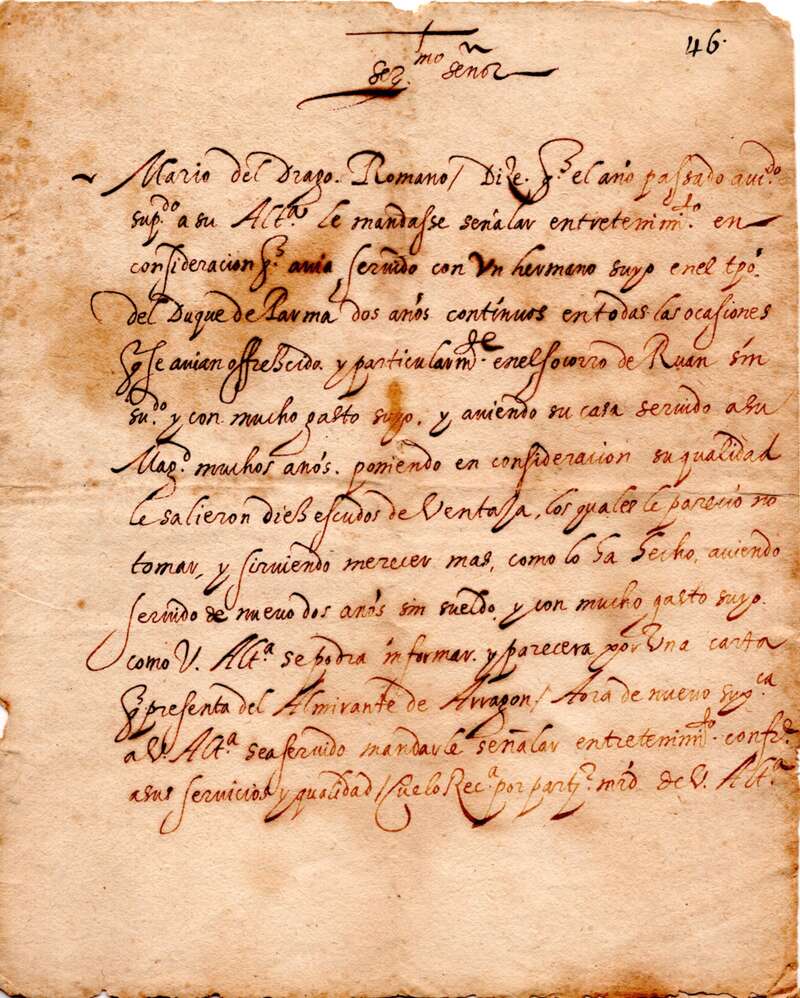 46.
Ser.mo señor
Mario del Drago. Romano / Dize, q.e el año passado avi.do
sup.do a su Alt.a le mandasse señalar entretenim.to en
consideracion q.e avia servido con Un hermano suyo en el tpó.
del Duque de Parma dos años continuos en todas las ocasiones
q se avian offrescido y particularm.te en el socorro de Ruan sin
su.do y con mucho gasto suyo, y aviendo su casa servido a su
Mag.d muchos años. poniendo en consideracion su qualidad
le salieron diez escudos de Ventaja, los quales le parecio no
tomar, y sirviendo merecer mas, como lo ha hecho, aviendo
servido de nuevo dos años sin sueldo, y con mucho gasto suyo.
como V. Alt.a se podra informar. y parecera por Una carta
q presenta del Almirante de Arragon / Aora de nuevo sup.ca
a V. Alt.a sea servido mandarle señalar entretenim.to conf.e
a sus servicios y qualidad / Que lo Rec.a por part.r mrd. de V. Alt.a